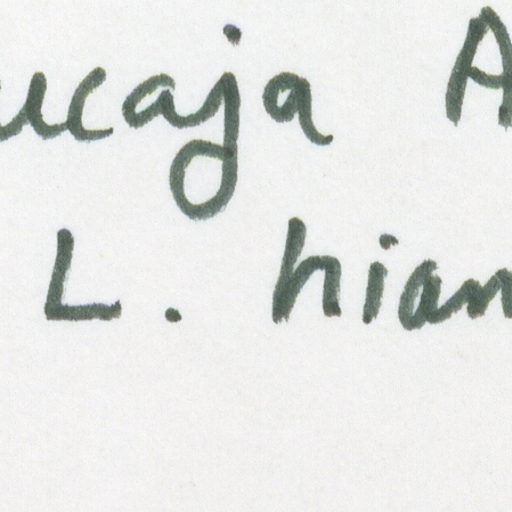 ucaja A
L. hian